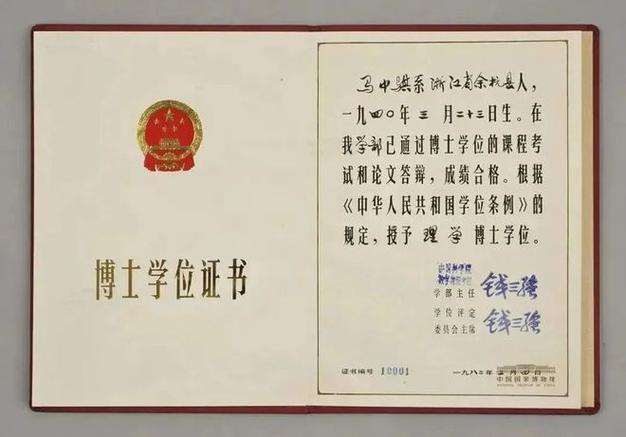 博士学位证书
马中骐系浙江省余杭县人，
一九四〇年三月二十三日生。在
我学部已通过博士学位的课程考
试和论文答辩，成绩合格。根据
《中华人民共和国学位条例》的
规定，授予理学博士学位。
中国科学院
数学物理学部
学部主任 钱三强
学位评定
委员会主席 钱三强
证书编号 10001
一九八二年 月 日
中国国家博物馆
NATIONAL MUSEUM OF CHINA